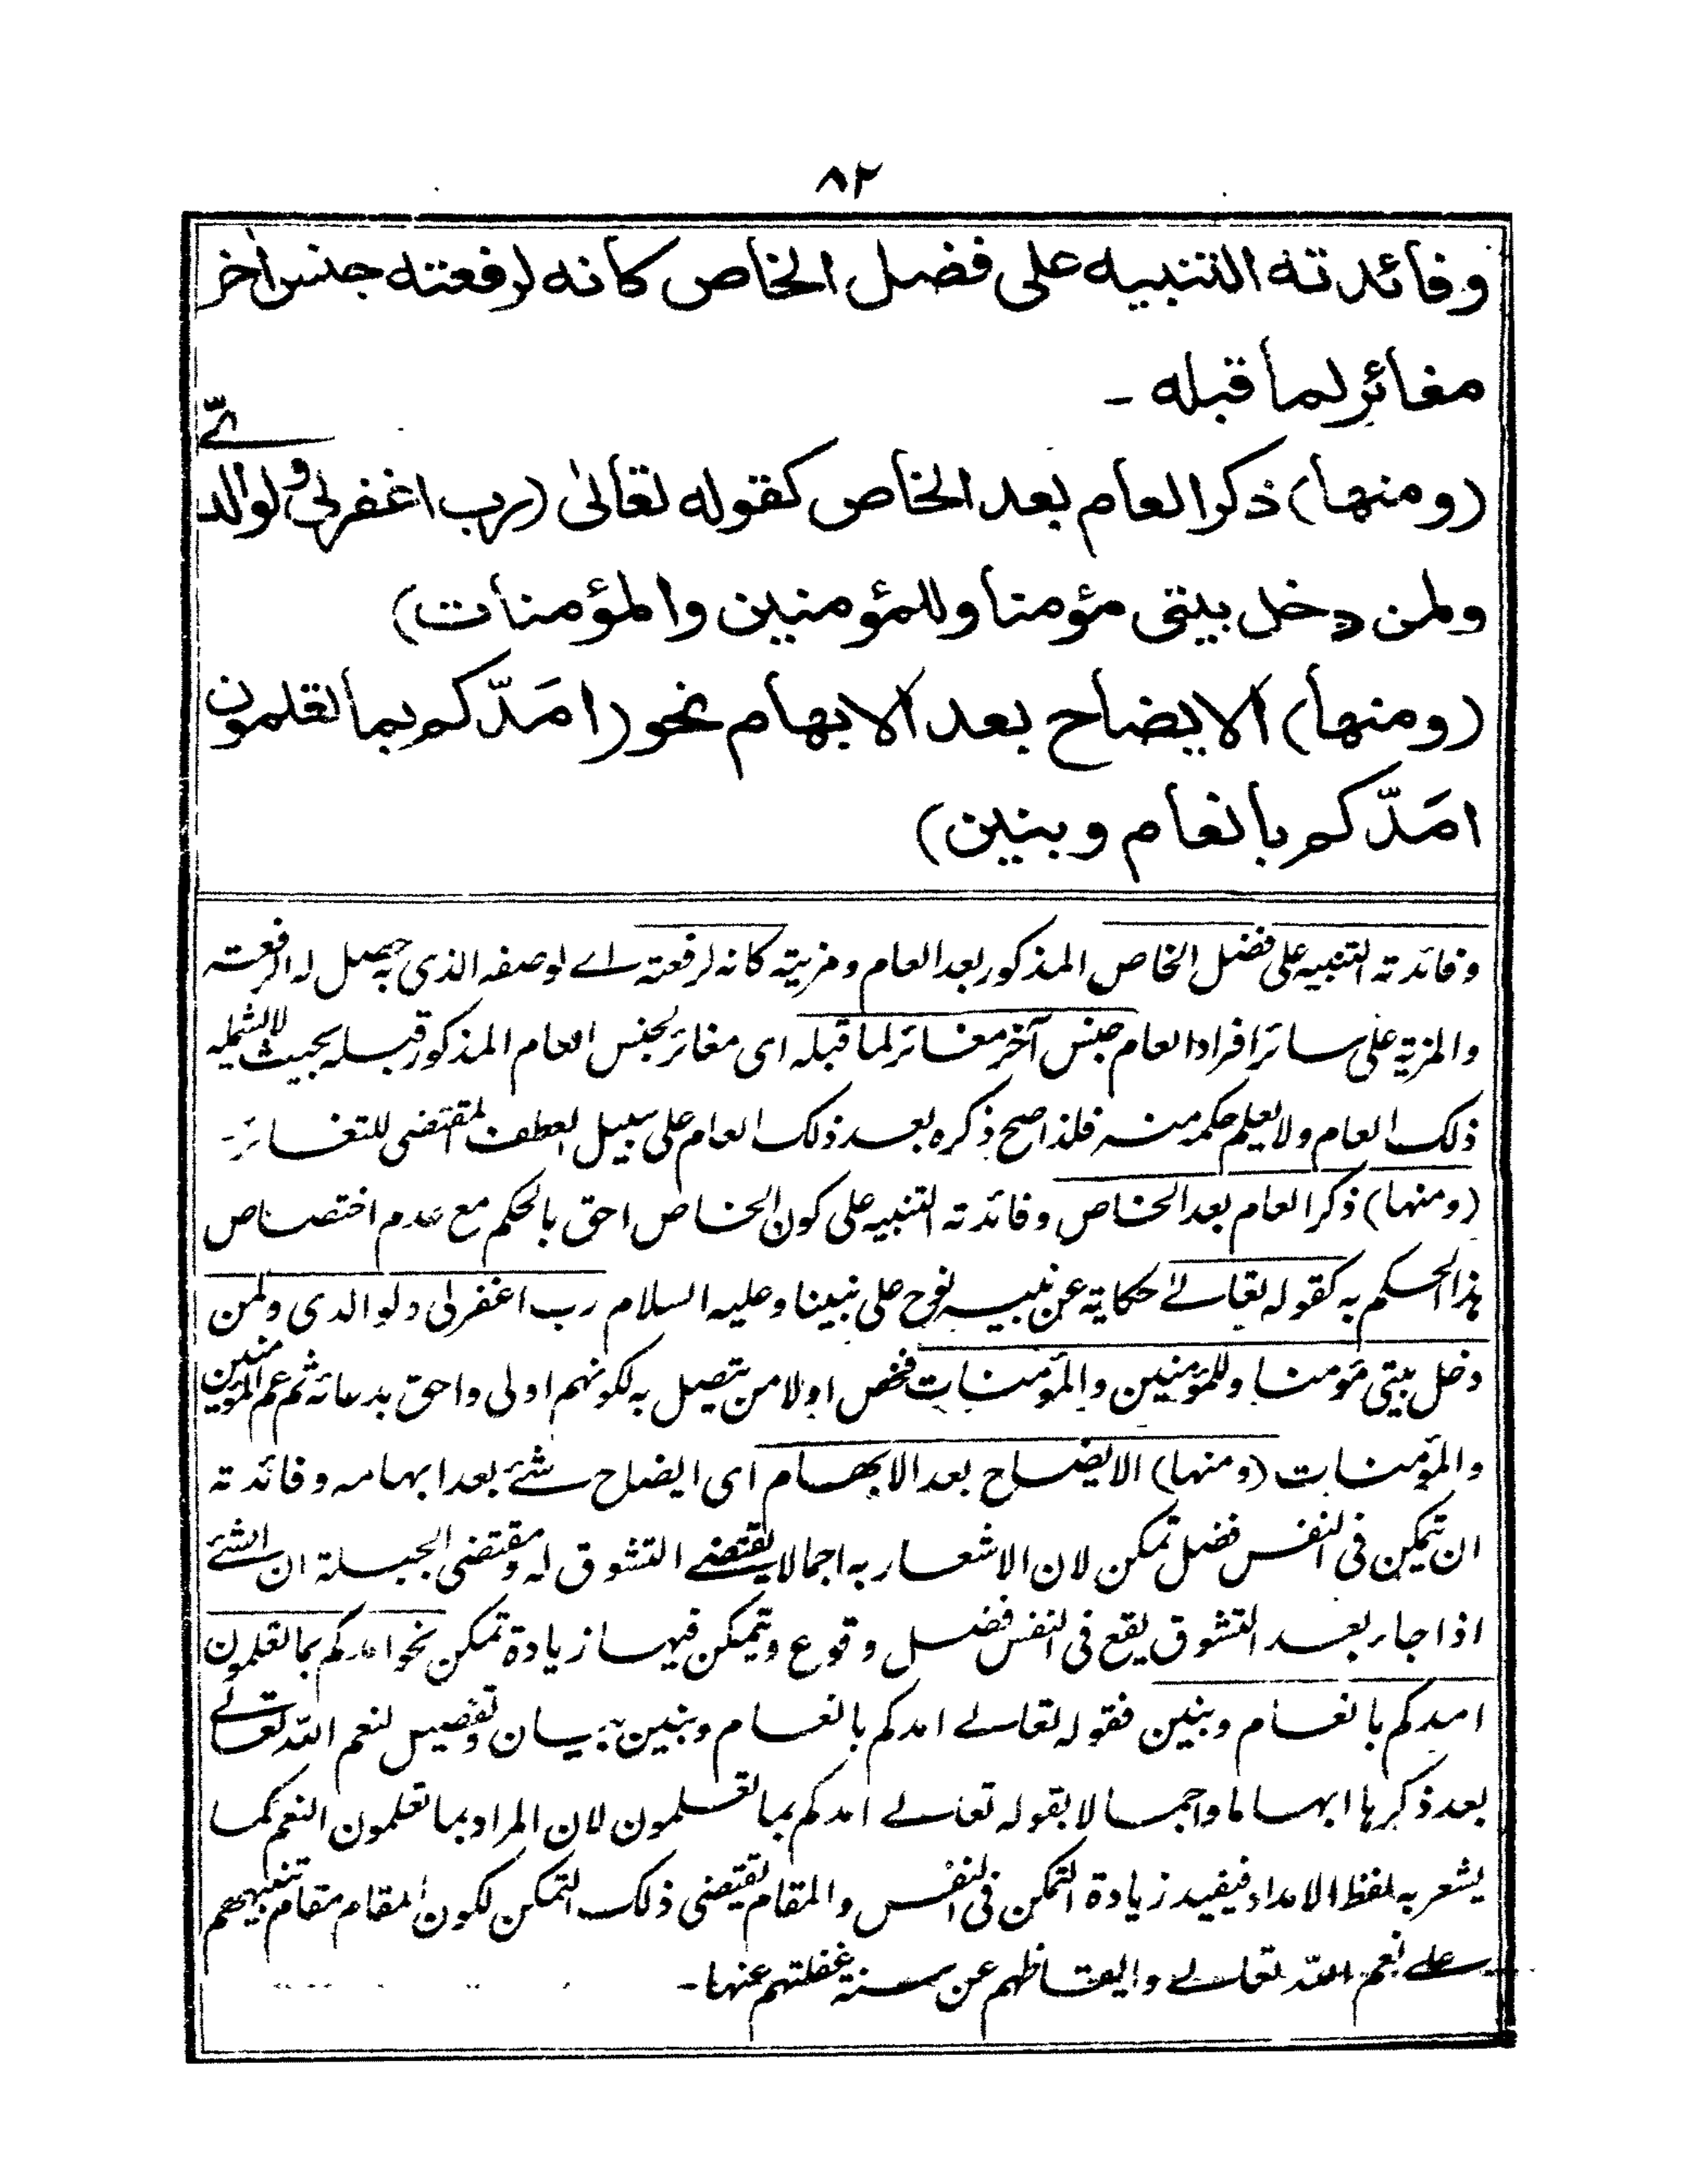 ٨٢
وفائدته التنبيه على فضل الخاص كانه لرفعته جنس اٰخر
مغائر لما قبله -
(ومنها) ذكر العام بعد الخاص كقوله تعالىٰ (رب اغفرلى ولوالدىّ
ولمن دخل بيتى مؤمنا وللمؤمنين والمؤمنات)
(ومنها) الايضاح بعد الابهام نحو (امَدّكم بما تعلمون
امَدّكم بانعام وبنين)
وفائدته التنبيه على فضل الخاص المذكور بعد العام ومزيته كانه لرفعته اے لوصفه الذى به حصل له الرفعته
والمزية على سائر افراد العام جنس آخر مغائر لما قبله اى مغائر لجنس العام المذكور قبله بحيث لا يشمله
ذلك العام ولا يعلم حكمه منه فلذا صح ذكره بعد ذلك العام على سبيل العطف المقتضى للتغائر-
(ومنها) ذكر العام بعد الخاص وفائدته التنبيه على كون الخاص احق بالحكم مع عدم اختصاص
هذا الحكم به كقوله تعالے حكاية عن نبيه نوح على نبينا وعليه السلام رب اغفرلى ولوالدى ولمن
دخل بيتى مؤمنا وللمؤمنين والمؤمنات فخص اولا من يتصل به لكونهم اولى واحق بدعائه ثم عم المؤمنين
والمؤمنات (ومنها) الايضاح بعد الابهام اى ايضاح شئے بعد ابهامه وفائدته
ان يتمكن فى النفس فضل تمكن لان الاشعار به اجمالا يقتضے التشوق له ومقتضى الجبلة ان الشئے
اذا جاء بعد التشوق يقع فى النفس فضل وقوع ويتمكن فيها زيادة تمكن نحو امدكم بما تعلمون
امدكم بانعام وبنين فقوله تعالے امدكم بانعام وبنين بيان وتفصيل لنعم الله تعالے
بعد ذكرها ابهاما واجمالا بقوله تعالے امدكم بما تعلمون لان المراد بما تعلمون النعم كما
يشعر به لفظ الامداد فيفيد زيادة التمكن فى النفس والمقام يقتضى ذلك التمكن لكون المقام مقام تنبيههم
علے نعم الله تعالے وايقاظهم عن سنة غفلتهم عنها-